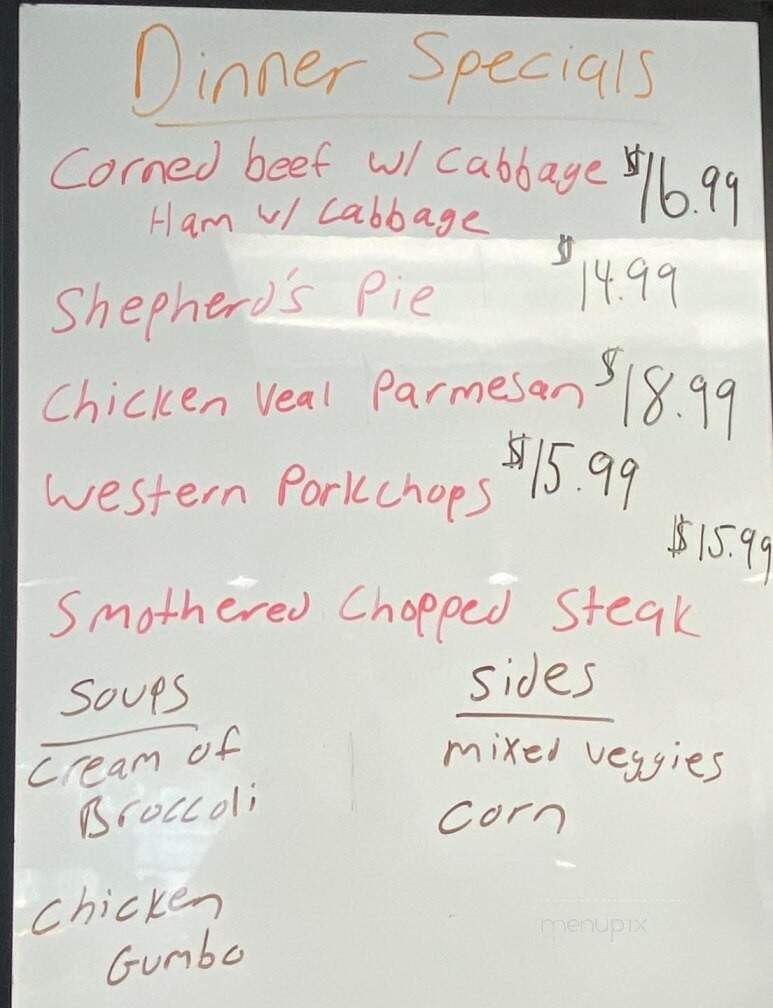 Dinner Specials
Corned beef w/ Cabbage $16.99
Ham w/ Cabbage
Shepherd's Pie $14.99
Chicken Veal Parmesan $18.99
Western Porkchops $15.99
$15.99
Smothered Chopped Steak
Soups
Cream of
Broccoli
Chicken
Gumbo
Sides
mixed veggies
Corn
menupix